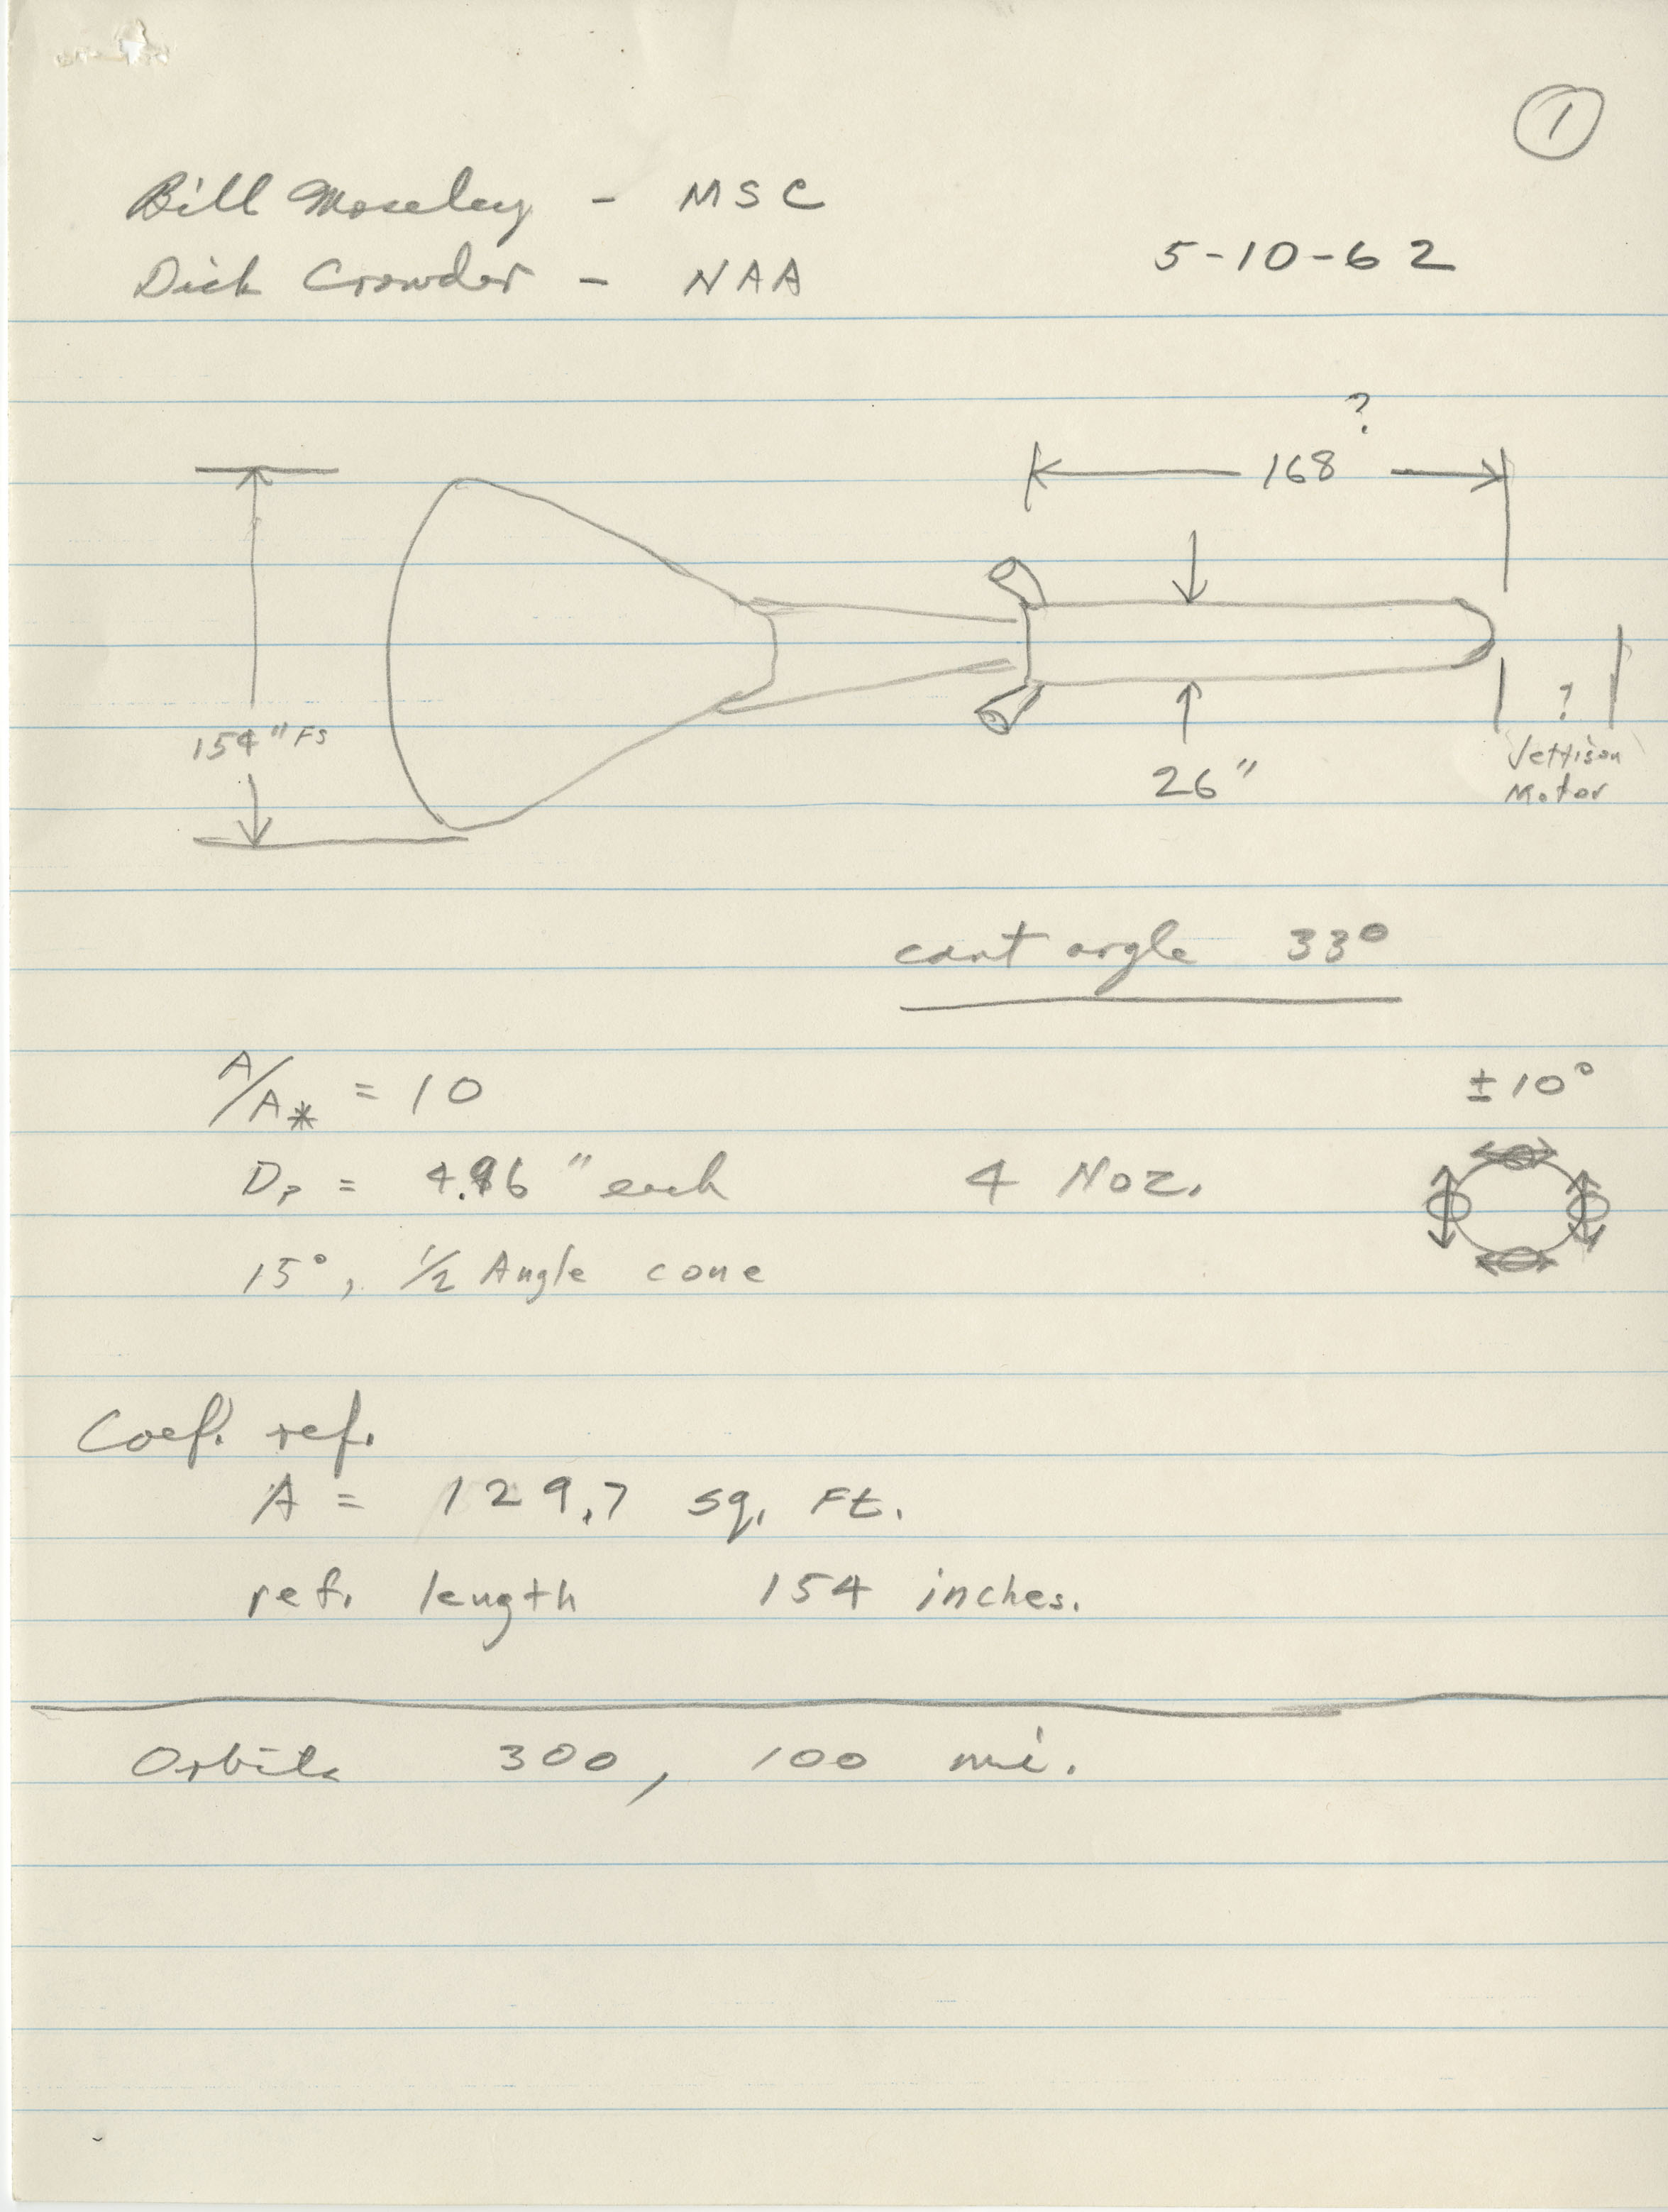 1
Bill Moseley - MSC
Dick Crowder - NAA
5-10-62
?
168
154" FS
26"
?
Jettison
Motor
cant angle 33°
A/A* = 10
±10°
4 Noz.
15°, 1/2 Angle cone
Coef. ref.
A = 129.7 sq. Ft.
ref. length 154 inches.
Orbits 300, 100 mi.